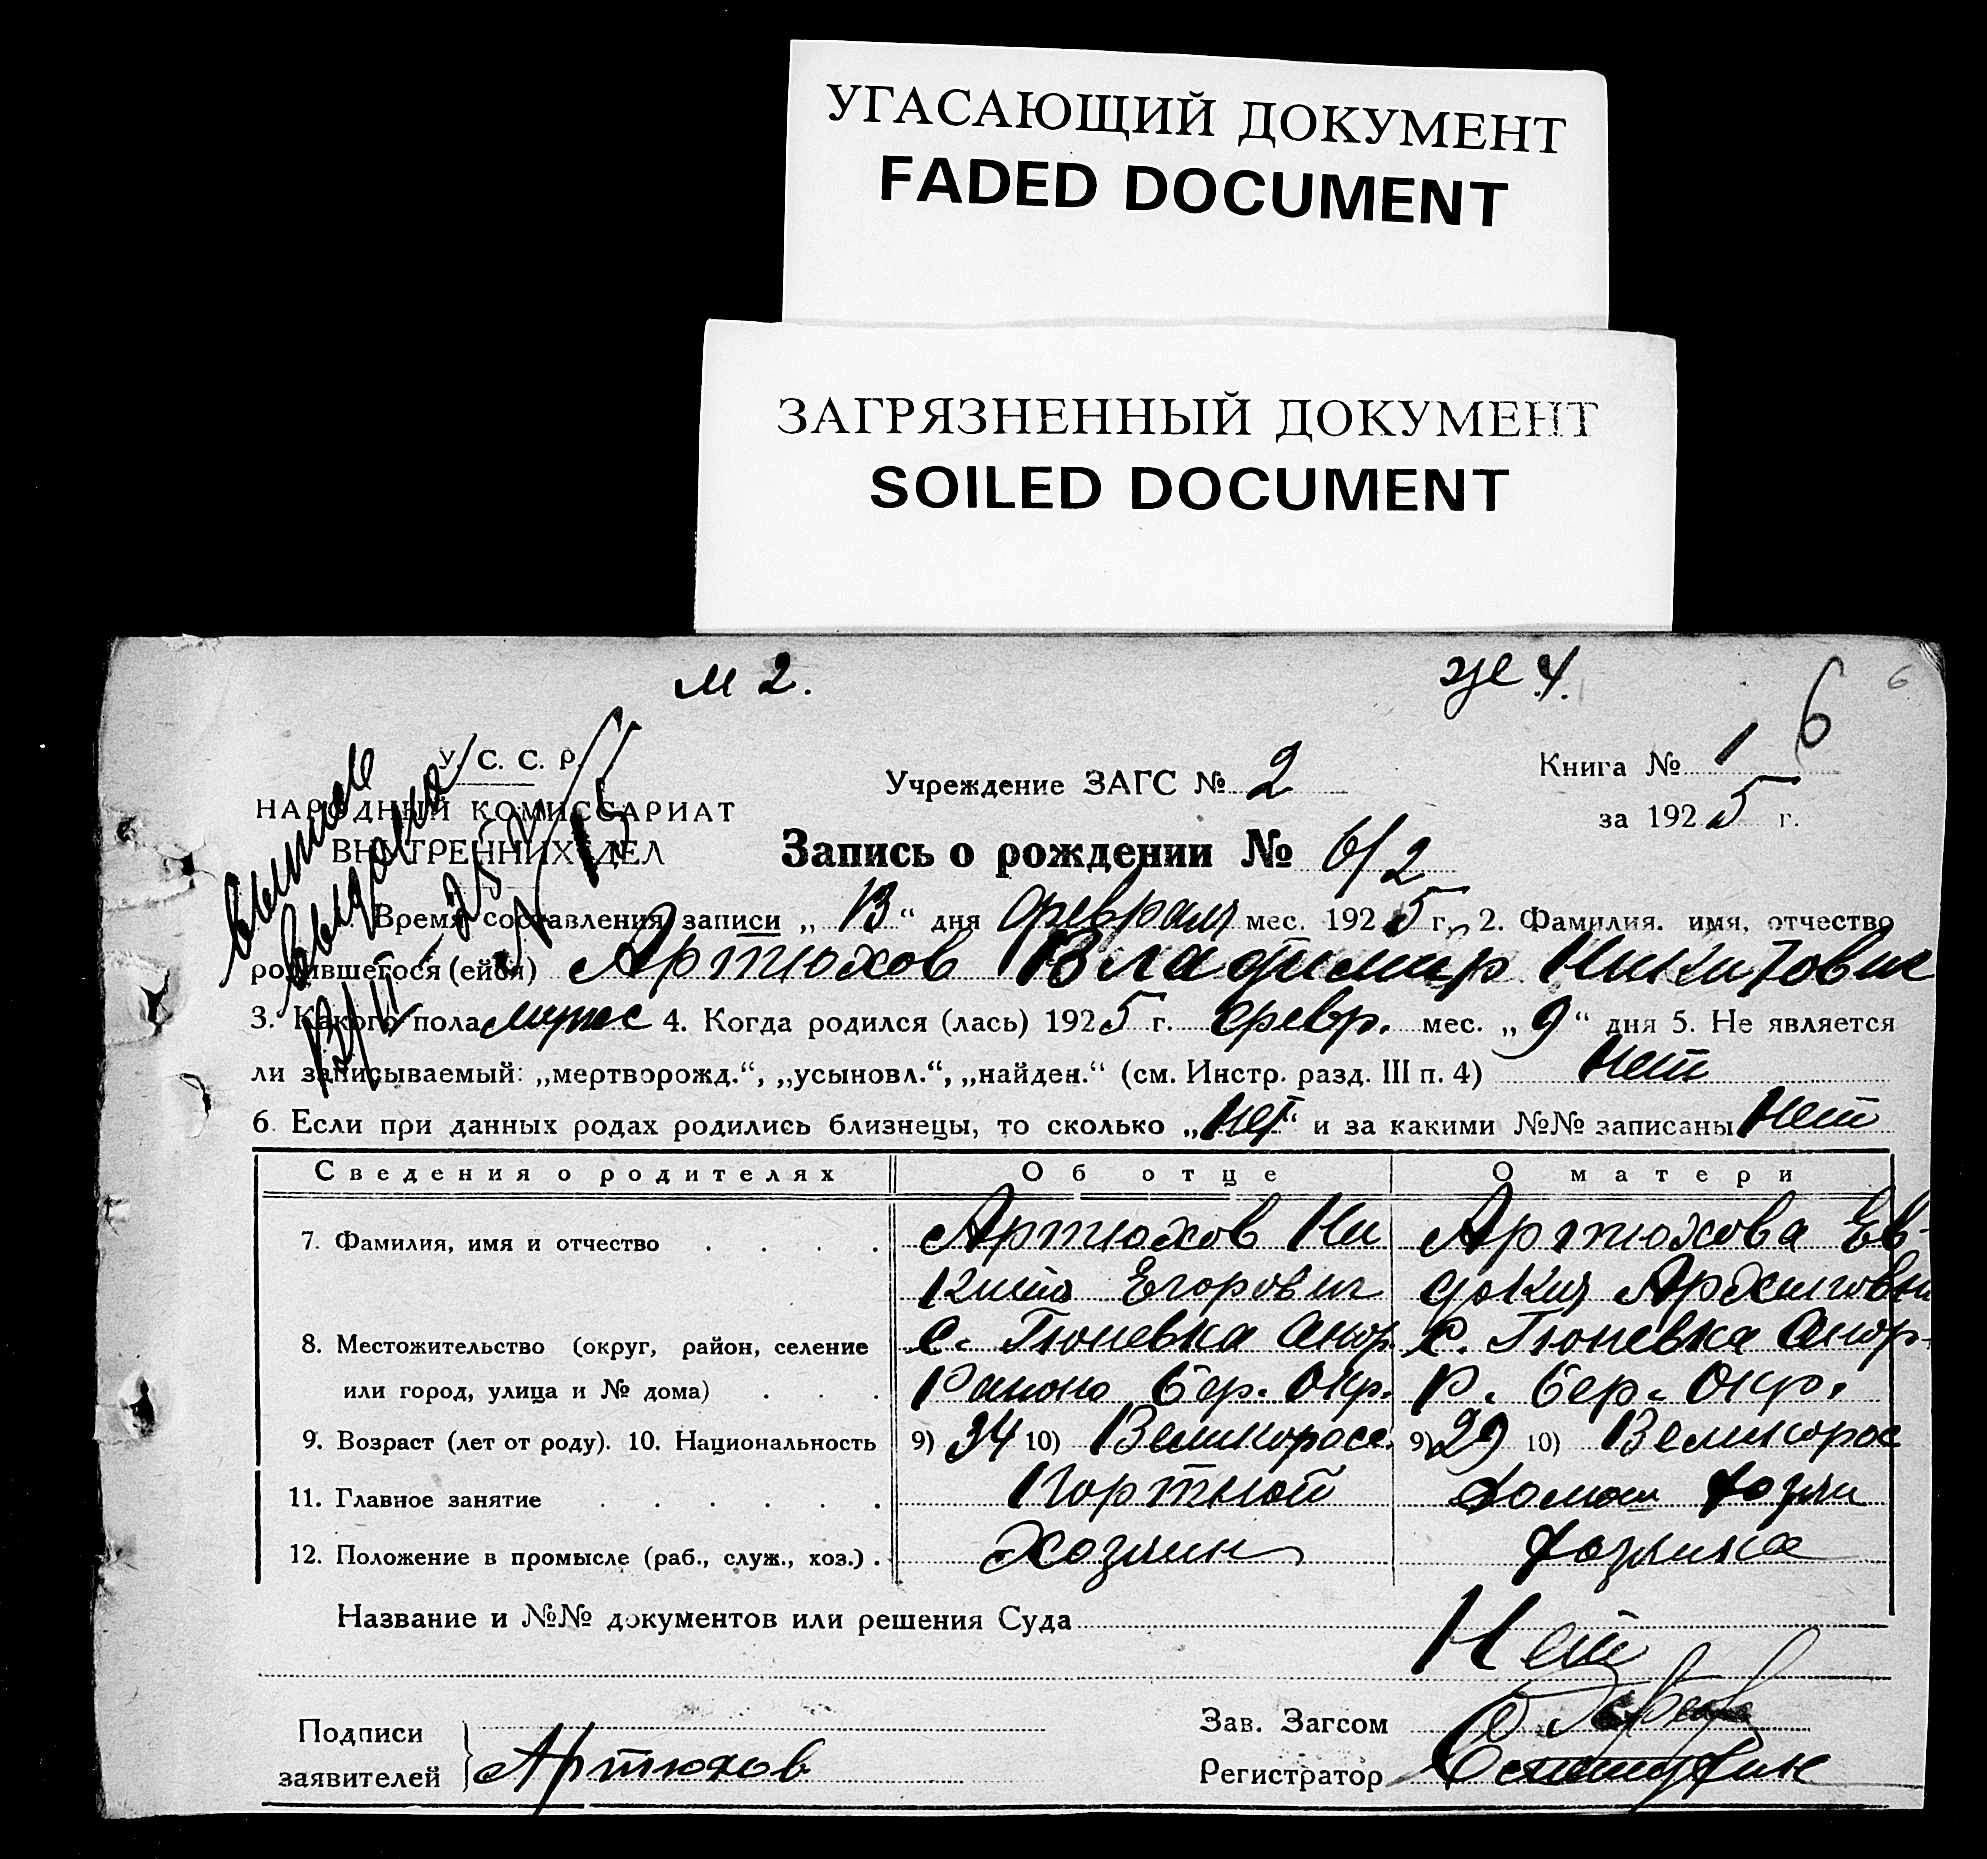 УГАСАЮЩИЙ ДОКУМЕНТ
FADED DOCUMENT
ЗАГРЯЗНЕННЫЙ ДОКУМЕНТ
SOILED DOCUMENT
м 2. же 4.
6 6
У. С. С. Р.
НАРОДНЫЙ КОМИССАРИАТ
ВНУТРЕННИХ ДЕЛ
Учреждение ЗАГС № 2
Книга № 1
за 1925 г.
Запись о рождении № 6/2
Время составления записи „13“ дня февраля мес. 1925 г. 2. Фамилия. имя, отчество
родившегося (ейся) Артюхов Владимир Никитович
3. Какого пола мужес 4. Когда родился (лась) 1925 г. февр. мес. „9“ дня 5. Не является
ли записываемый: „мертворожд.“, „усыновл.“, „найден.“ (см. Инстр. разд. III п. 4) Нет
6. Если при данных родах родились близнецы, то сколько „Нет“ и за какими №№ записаны Нет
Сведения о родителях Об отце О матери
7. Фамилия, имя и отчество Артюхов Ни Артюхова Ев-
кита Егорович докия Архиповн
8. Местожительство (округ, район, селение с. Тюпевка Анор. с. Тюпевка Анор.
или город, улица и № дома) Района Бер. Окр. Р. Бер. Окр.
9. Возраст (лет от роду). 10. Национальность 9) 34 10) Великоросс. 9) 29 10) Великорос
11. Главное занятие Портной домаш хозяй
12. Положение в промысле (раб., служ., хоз.) Хозяин хозяйка
Название и №№ документов или решения Суда Нет
Подписи
заявителей Артюхов
Зав. Загсом
Регистратор